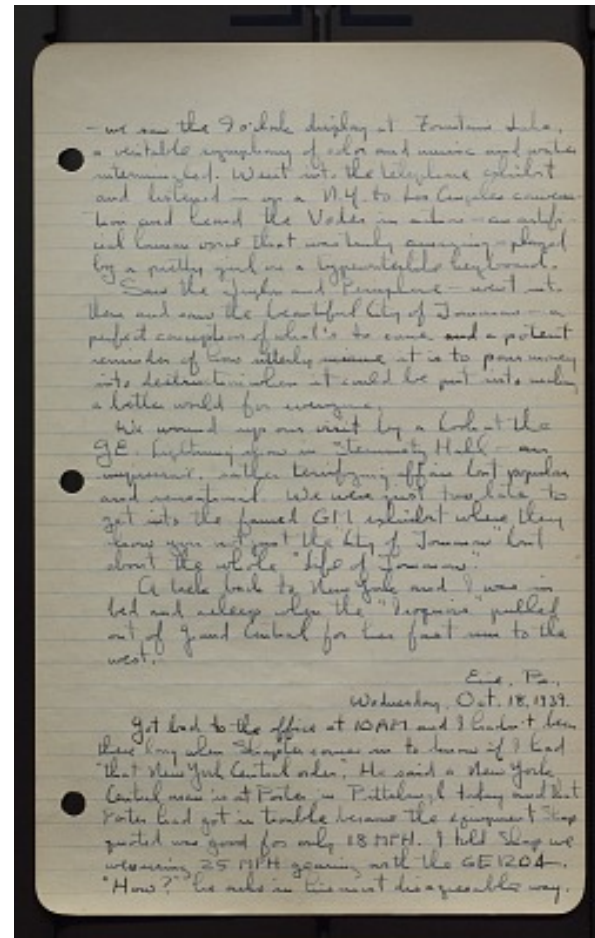 - we saw the 9 o'clock display at Fountain Lake,
a veritable symphony of color and music and water
intermingled. Went into the telephone exhibit
and listened in on a N.Y. to Los Angeles conversa-
tion and heard the Voder in action - an artifi-
cial human voice that was truly amazing - played
by a pretty girl on a typewriterlike keyboard.
Saw the Trylon and Perisphere - went into
there and saw the beautiful City of Tomorrow - a
perfect conception of what's to come and a potent
reminder of how utterly it is to pour money
into destruction when it could be put into making
a better world for everyone.
We wound up our visit by a look at the
G.E. Lightning show in Steinmetz Hall - an
impressive, rather terrifying affair but popular
and sensational. We were just too late to
get into the famed GM exhibit where they
show you not just the "City of Tomorrow" but
about the whole "Life of Tomorrow".
A trek back to New York and I was in
bed and asleep when the "Iroquois" pulled
out of Grand Central for her fast run to the
west.
Erie, Pa.,
Wednesday, Oct. 18, 1939.
Got back to the office at 10 AM and I hadn't been
there long when comes in to know if I had
"that New York Central order". He said a New York
Central man is at Porter in Pittsburgh today and that
Porter had got in trouble because the equipment
quoted was good for only 18 MPH. I told we
were using 25 MPH gearing with the GE1204.
"How?" he asks in his most disagreeable way.